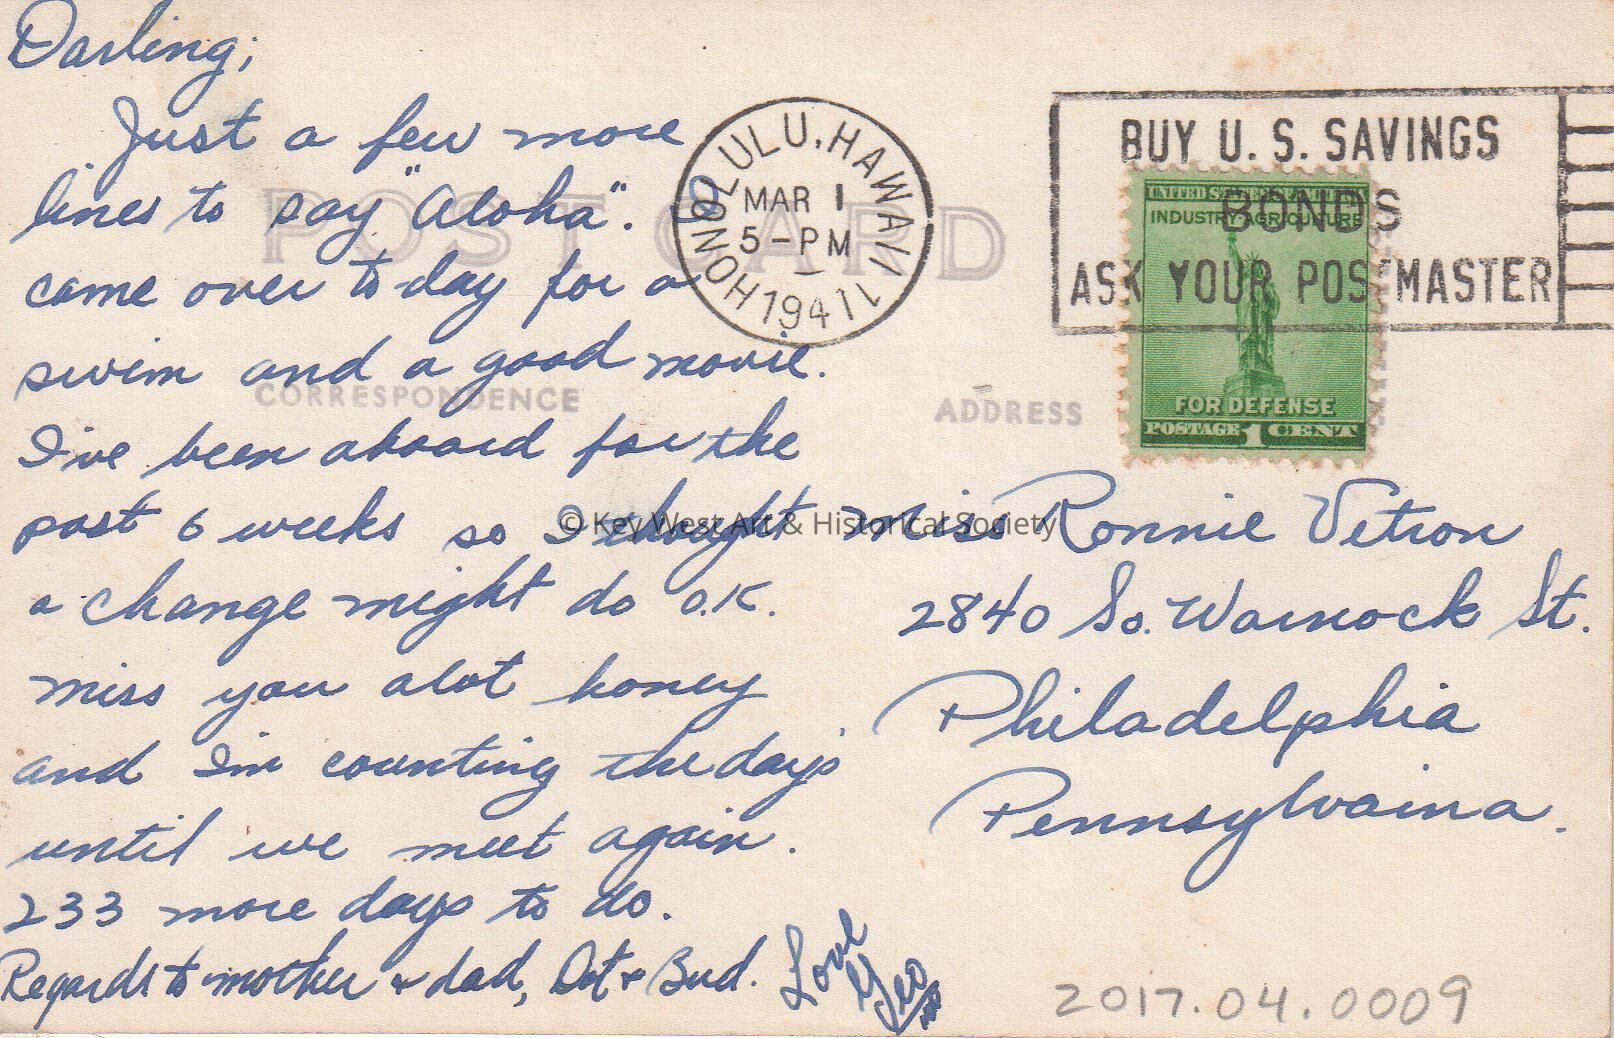 Darling;
Just a few more
lines to say "Aloha". I
came over to day for a
swim and a good movie.
I've been aboard for the
past 6 weeks so I thought
a change might do O.K.
miss you alot honey
and I'm counting the days
until we meet again.
233 more days to do.
Regards to mother & dad, Dot & Bud.
Love
Geo
POST CARD
CORRESPONDENCE
ADDRESS
HONOLULU, HAWAII
MAR 1
5-PM
1941
BUY U. S. SAVINGS
BONDS
ASK YOUR POSTMASTER
UNITED STATES OF AMERICA
INDUSTRY AGRICULTURE
FOR DEFENSE
POSTAGE 1 CENT
© Key West Art & Historical Society
Miss Ronnie Vetron
2840 So. Warnock St.
Philadelphia
Pennsylvaina.
2017.04.0009